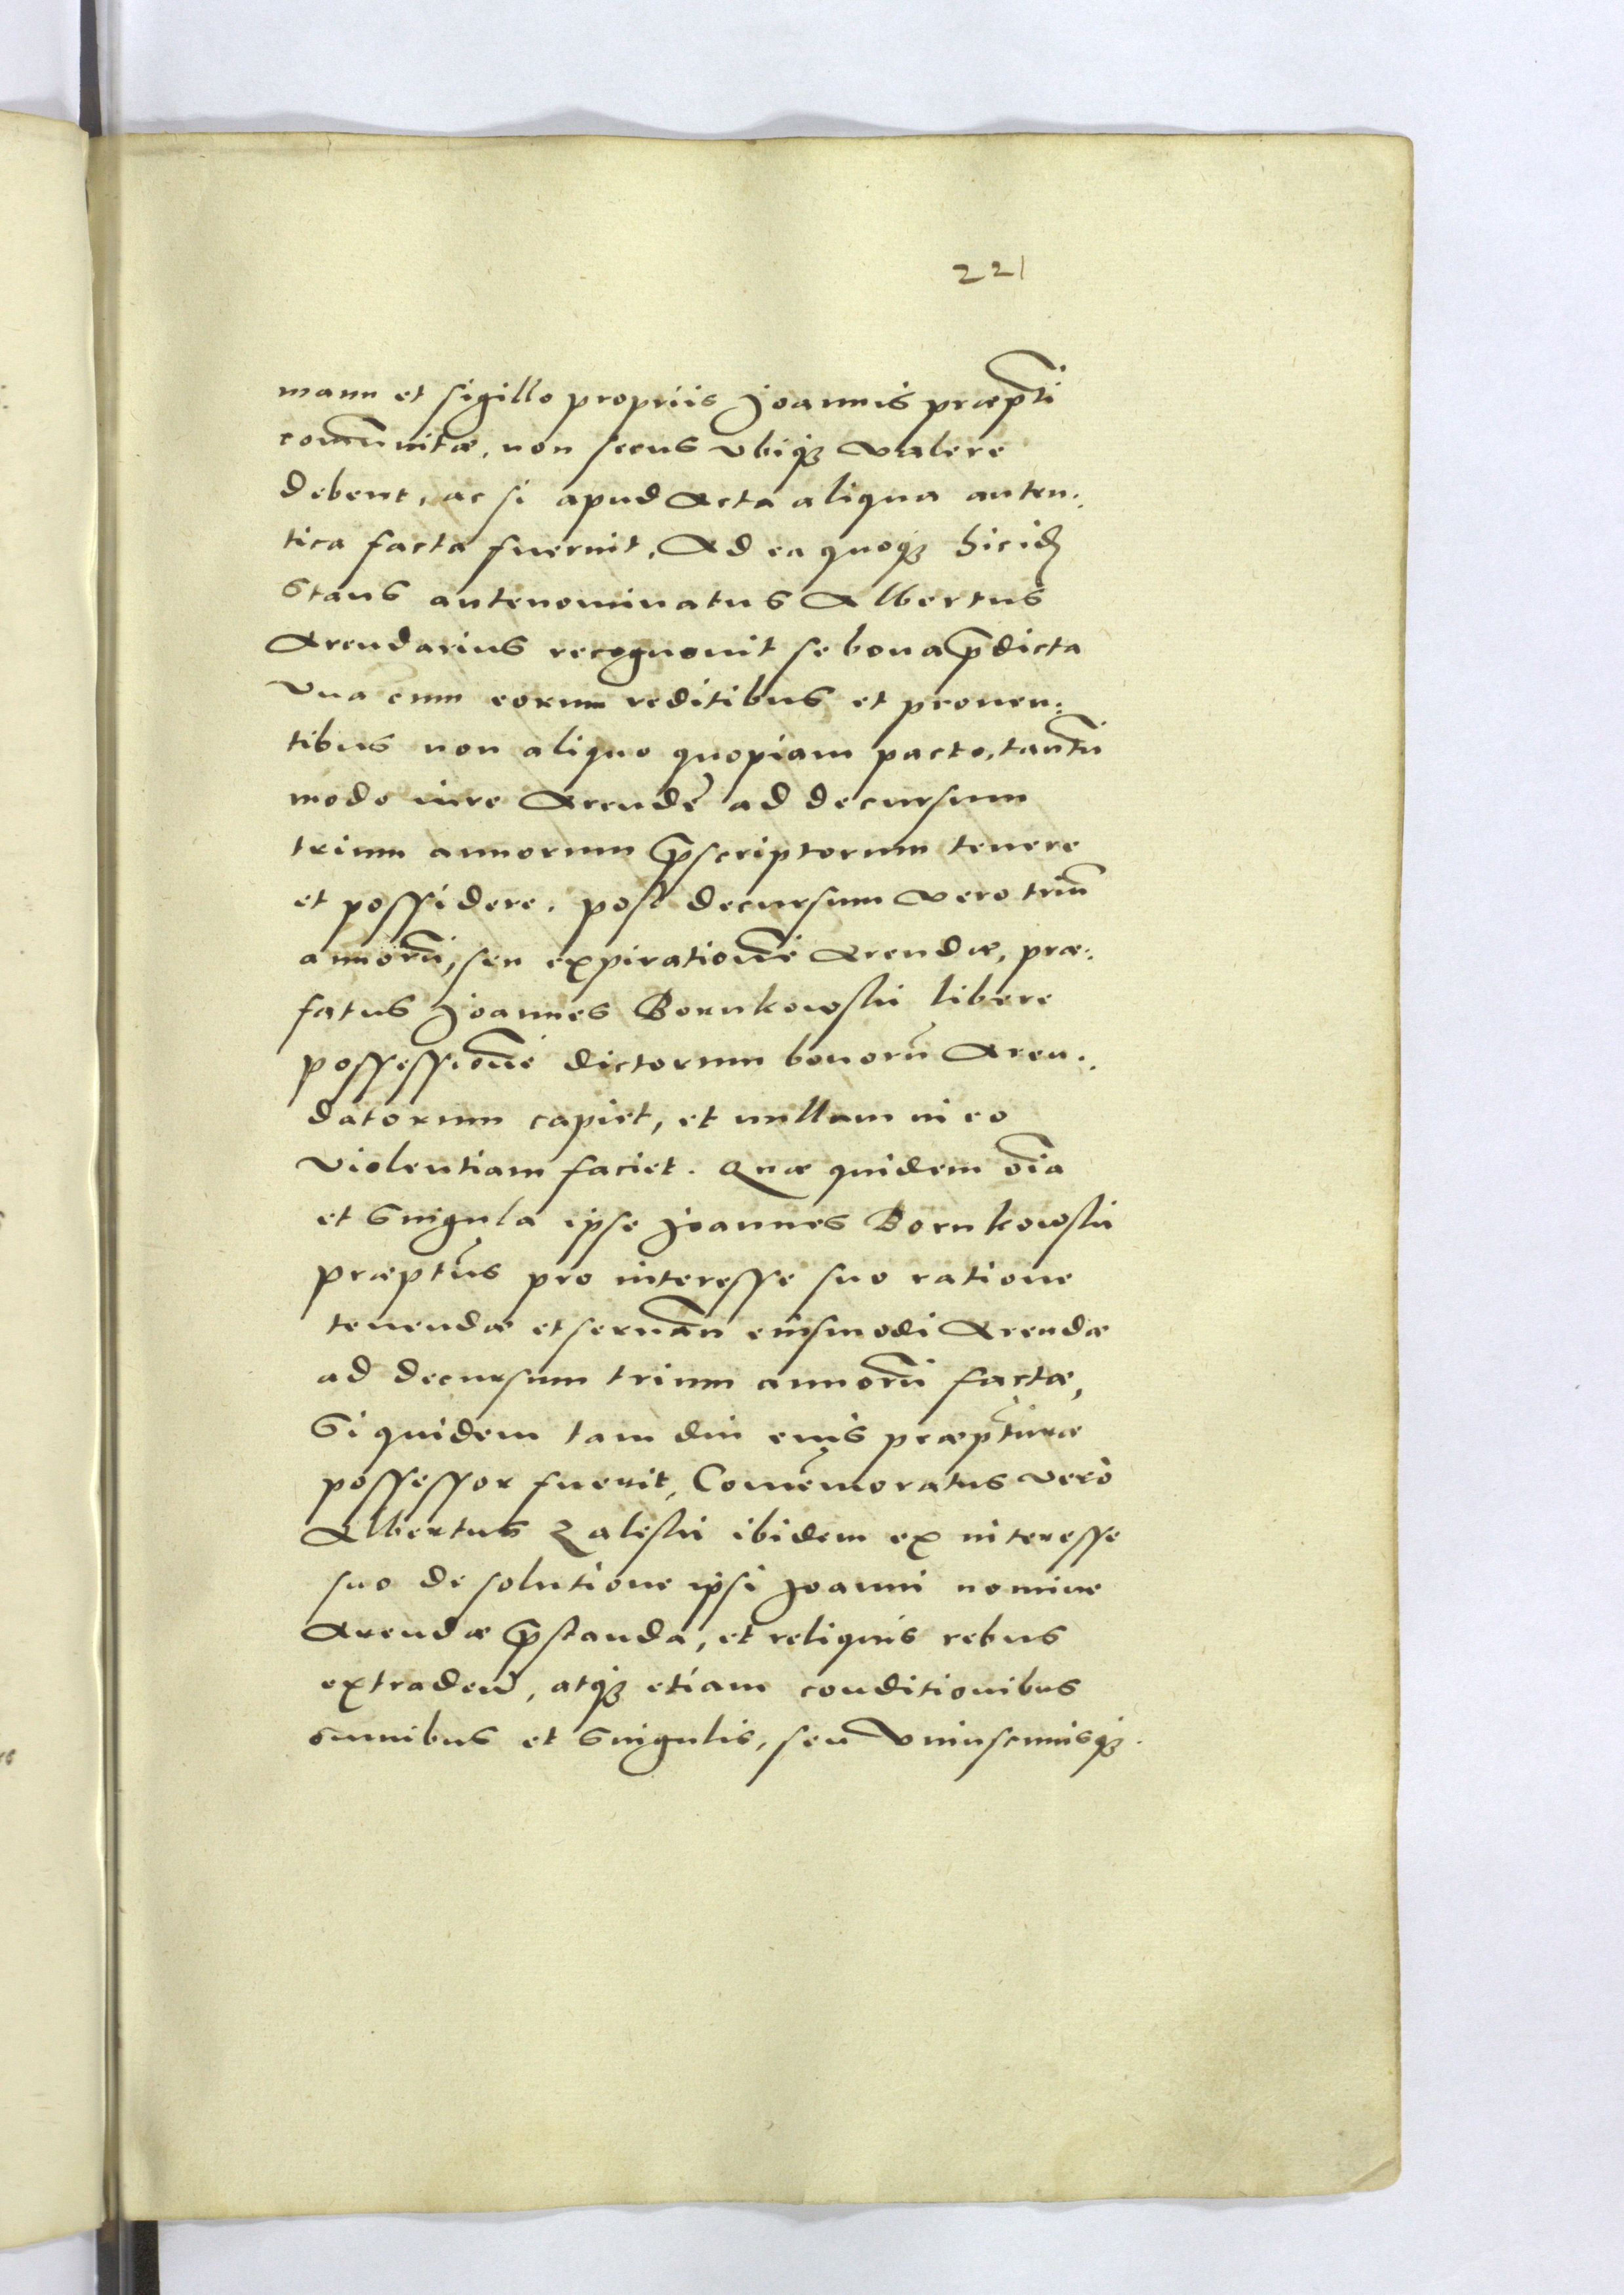 221
manu et sigillo propriis Joannis præpti
comūnitæ, non secus vbiqȝ valere
debent, ac si apud Acta aliqua auten:
tica facta fuerint. Ad ea quoqȝ hicid
Stans antenominatus Albertus
Arendarius recognouit se bona p̄dicta
vna cum eorum reditibus et prouen:
tibus non aliquo quopiam pacto, tantū
modo iure Arendę ad decursum
trium annorum p̄scriptorum tenere
et possidere. post decursum vero triū
annorū, seu expirationē Arendæ, præ:
fatus Joannes Bornkowski libere
possessionē dictorum bonorū Aren:
datorum capiet, et nullam in eo
violentiam faciet. Quæ quidem oīa
et Singula ipse Joannes Bornkowski
præptūs pro interesse suo ratione
tenendæ et seruān eiusmodi Arendæ
ad decursum trium annorū factæ,
Si quidem tam diu eius præptūræ
possessor fuerit, Comēmoratus verò
Albertus Zaleski ibidem ex interesse
suo de solutione ipsi Joanni nomine
Arendæ p̄standa, et reliquis rebus
extraden̄, atqȝ etiam conditionibus
omnibus et Singulis, seu Vniuscuiusqȝ